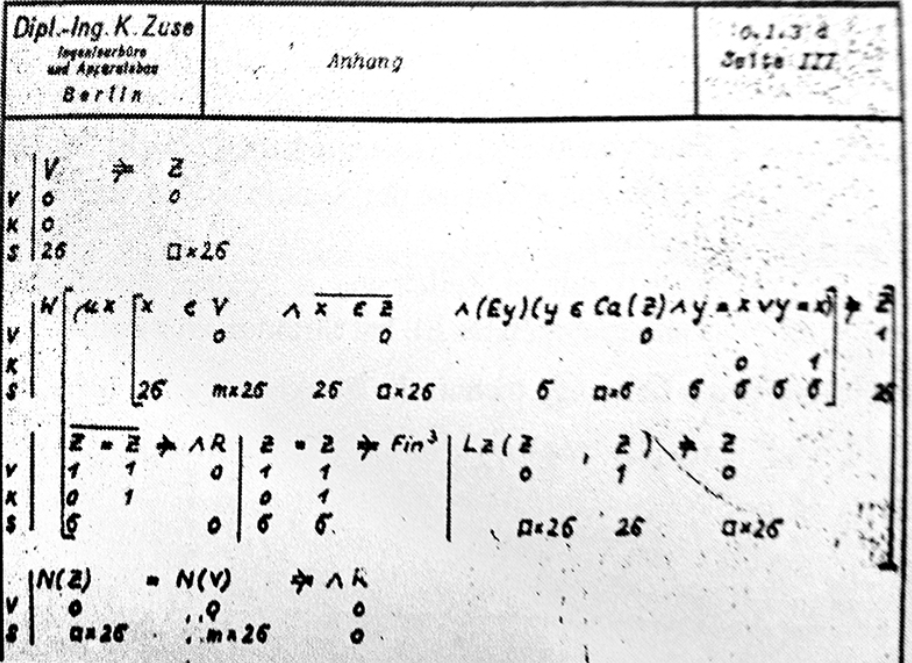 Dipl.-Ing. K. Zuse
Ingenieurbüro
und Apparatebau
Berlin
Anhang
0.1.3 d
Seite III
V ⇒ Z
V 0 0
K 0
S 26 □×26
W [ μx [ x ϵ V ∧ x̅ ̅ϵ̅ ̅Z̅ ∧ (Ey)(y ϵ Ca(Z) ∧ y = x ∨ y = x) ] ⇒ Z
V 0 0 0 1
K 0 1
S 26 m×26 26 □×26 6 □×6 6 6 6 6 26
Z̅ ̅=̅ ̅Z̅ ⇒ ∧ R | Z = Z ⇒ Fin³ | Lz ( Z , Z ) ⇒ Z
V 1 1 0 1 1 0 1 0
K 0 1 0 1
S 6 0 6 6 □×26 26 □×26
N(Z) = N(V) ⇒ ∧ R
V 0 0 0
S □×26 m×26 0